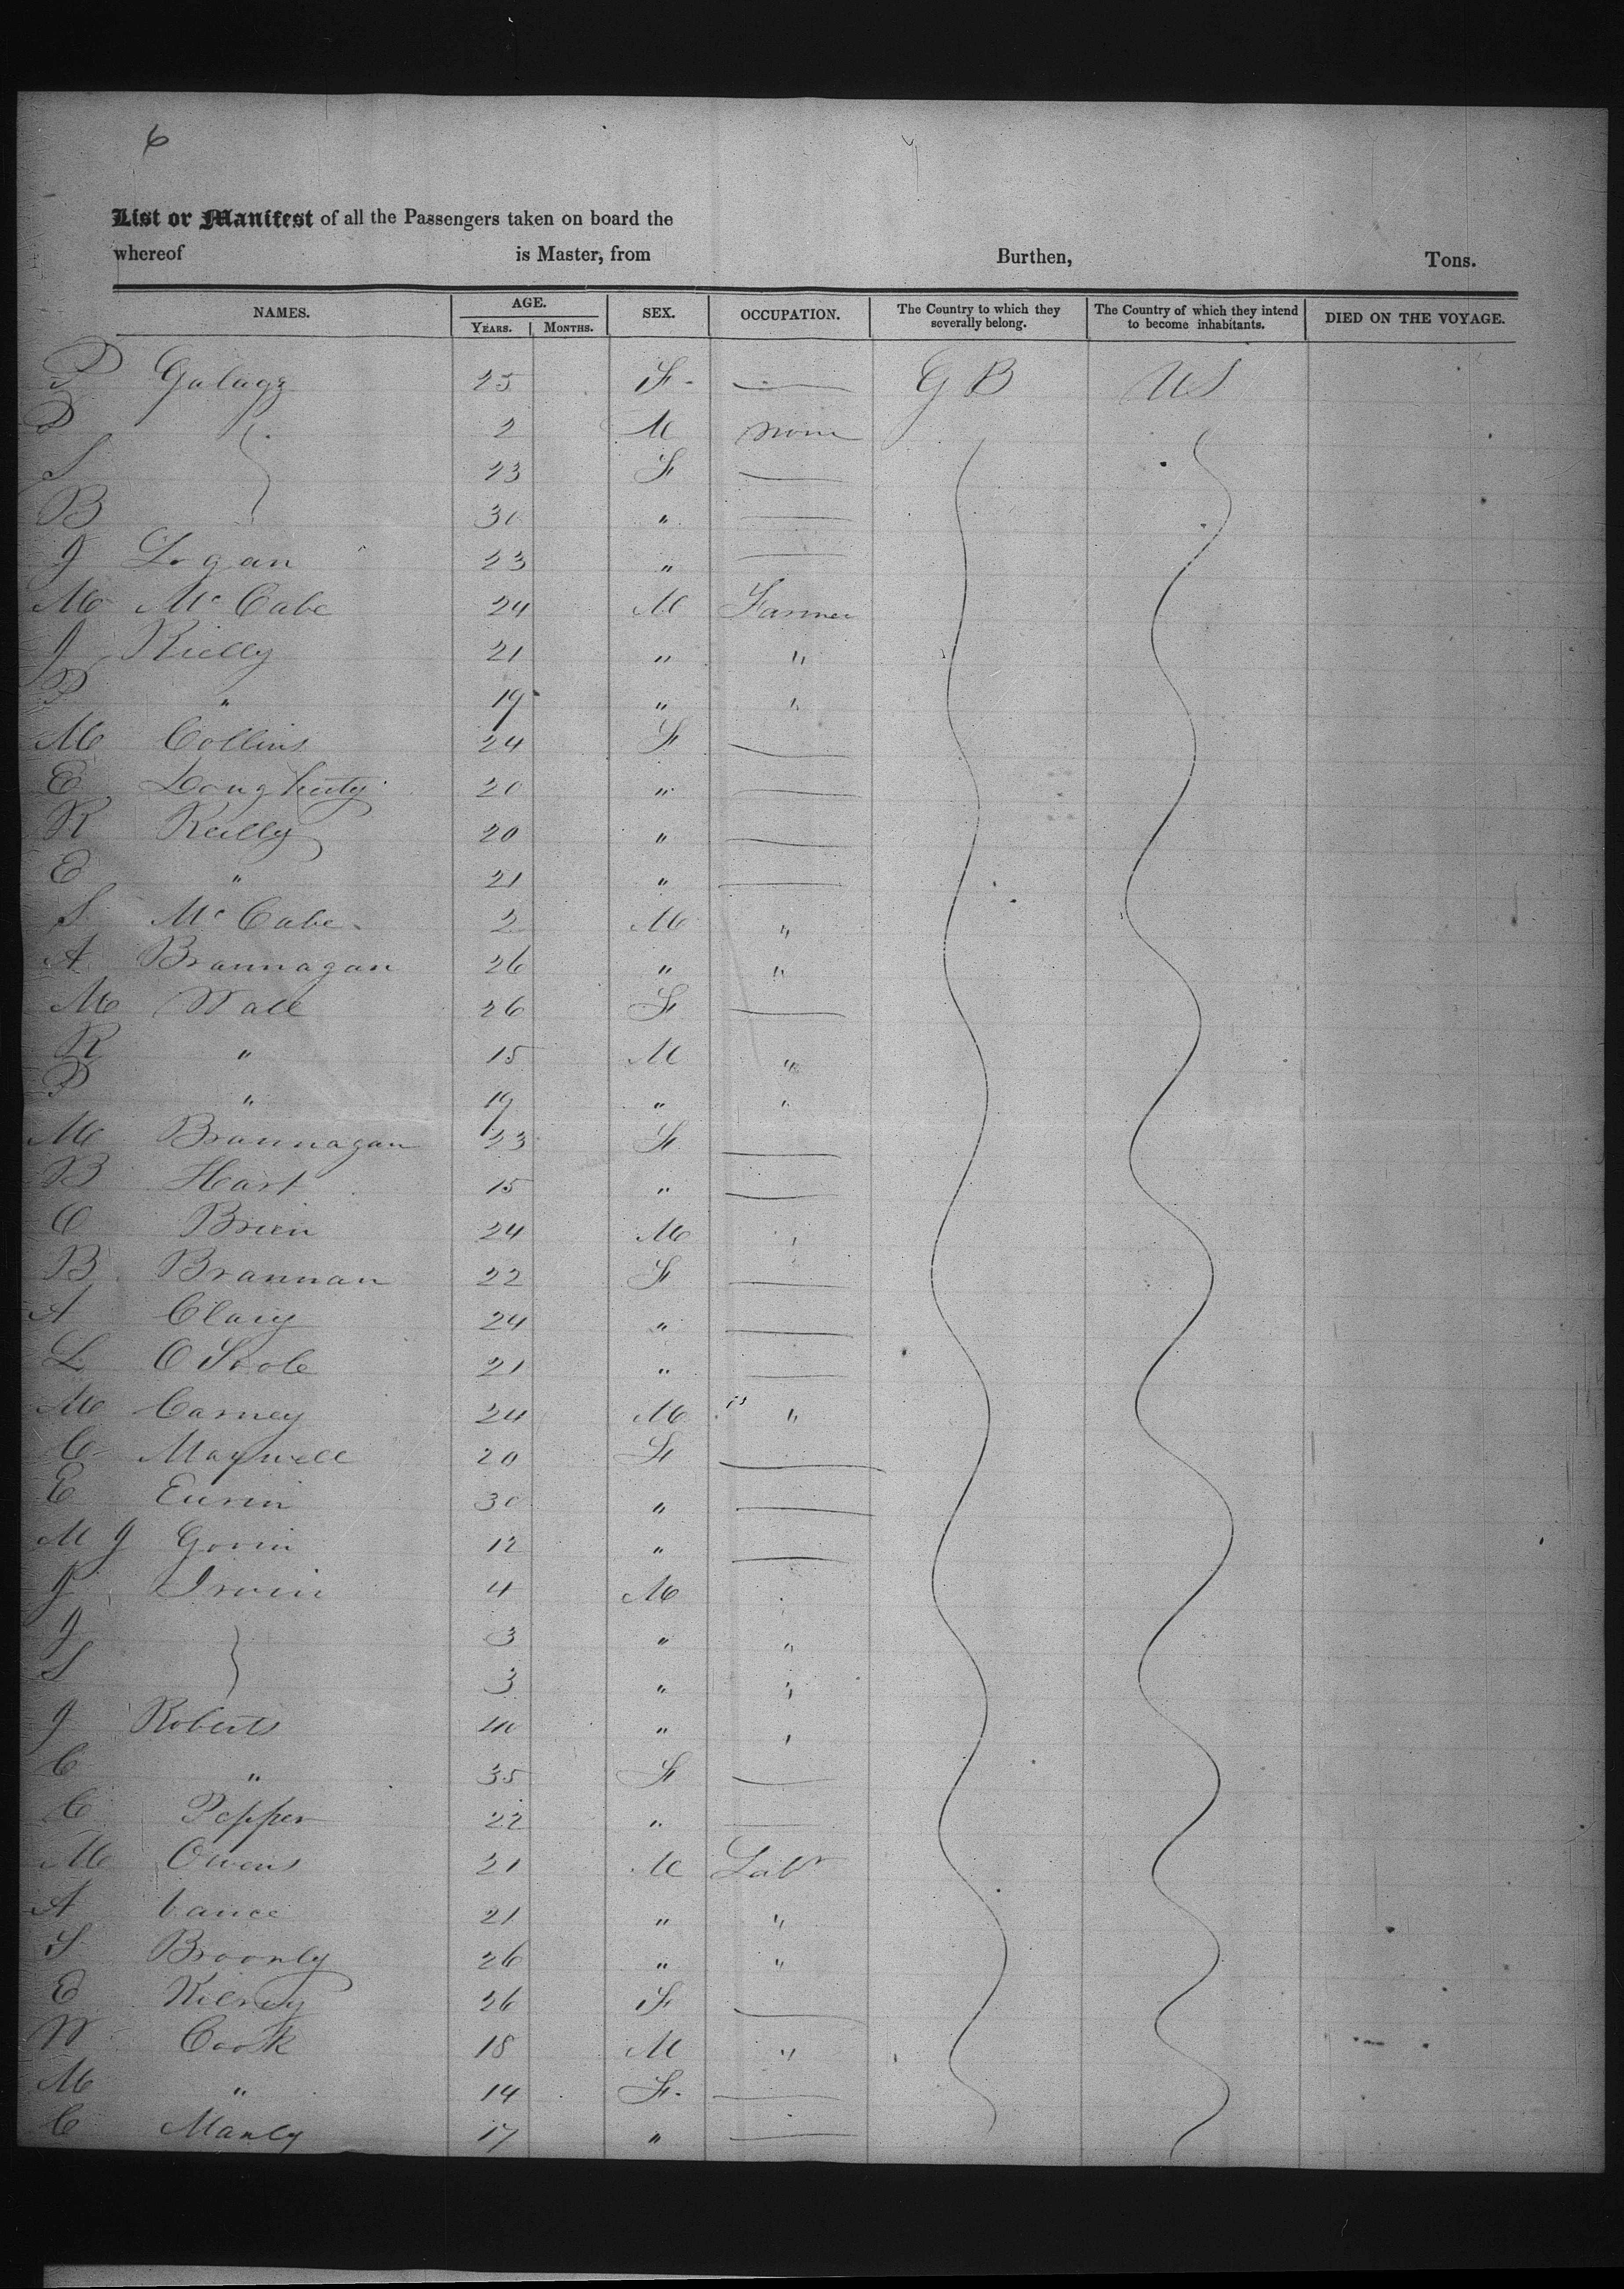 6
List or Manifest of all the Passengers taken on board the
whereof is Master, from Burthen, Tons.
NAMES. AGE. YEARS. MONTHS. SEX. OCCUPATION. The Country to which they severally belong. The Country of which they intend to become inhabitants. DIED ON THE VOYAGE.
P 25 F - — G B U S
P 2 M none
S 23 F —
B 30 " —
J Logan 23 " —
M McCabe 24 M Farmer
J Rielly 21 " "
P " 19 " "
M Collins 24 F —
E Dougherty 20 " —
R Reilly 20 " —
E " 21 " —
S McCabe 2 M "
A Brannagan 26 " "
M Wall 26 F —
R " 15 M "
P " 19 " "
M Brannagan 23 F —
B Hart 15 " —
C Brien 24 M "
B Brannan 22 F —
A Clary 24 " —
L O Toole 21 " —
M Carney 24 M "
C Maxwell 20 F —
E 30 " —
M J 12 " —
J Irvin 4 M "
J 3 " "
S 3 " "
J Roberts 40 " "
C " 35 F —
C Pepper 22 " —
M Owens 21 M Labr
A 21 " "
S 26 " "
E 26 F —
W Cook 18 M "
M " 14 F - —
C Manly 17 " —